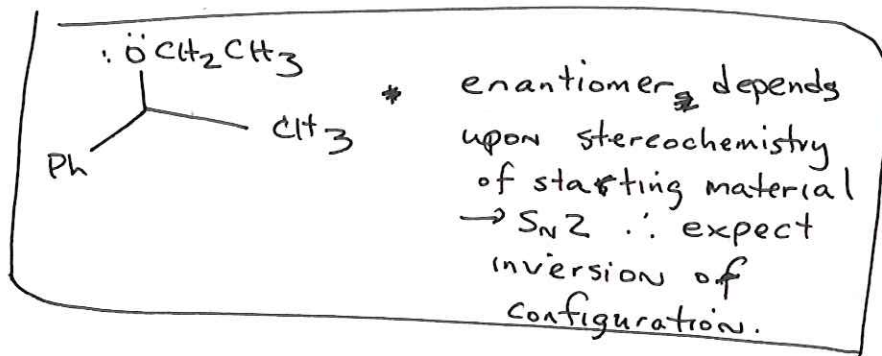 :ÖCH2CH3
CH3
Ph
* enantiomer depends
upon stereochemistry
of starting material
→ SN2 ∴ expect
inversion of
configuration.